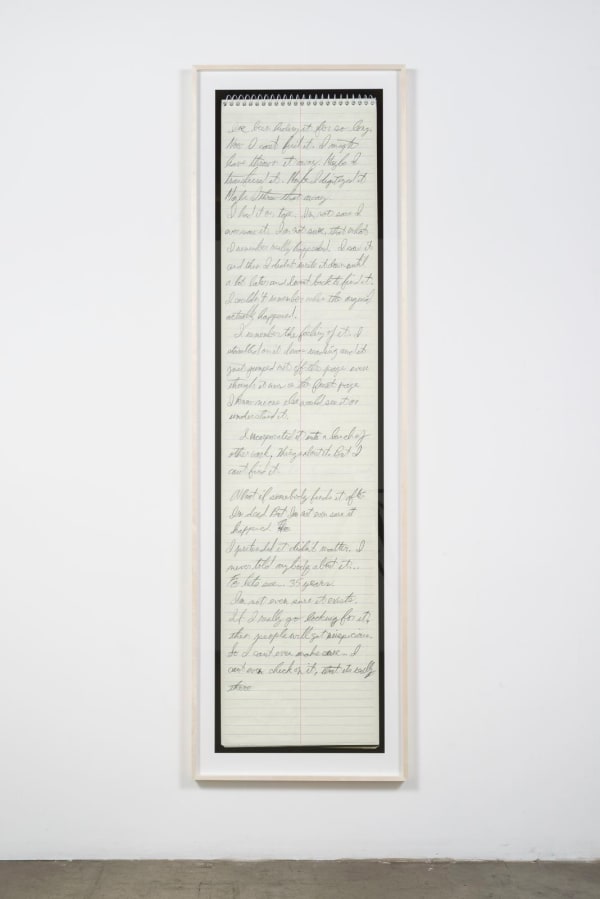 ive been hiding it for so long.
Now I cant find it. I might
have thrown it away. Maybe I
transferred it. Maybe I digitized it
Maybe I threw that away.
I had it on tape. Im not sure I
it. Im not sure, that what
I remember really happened. I saw it
and then I didnt write it down until
a lot later and went back to find it.
I couldn't remember when the original
actually happened.
I remember the feeling of it. I
stumbled on it down and it
just jumped out off the page even
though it was on the page
I know no one else would see it or
understand it.
I incorporated it into a bunch of
other work, things about it. But I
cant find it.
What if somebody finds it after
Im dead. But Im not even sure it
happened
I pretended it didnt matter. I
never told anybody about it..
35 years
Im not even sure it exists.
If I really go looking for it,
then people will get suspicious.
So I cant even make sure - I
cant even check on it, that its really
there